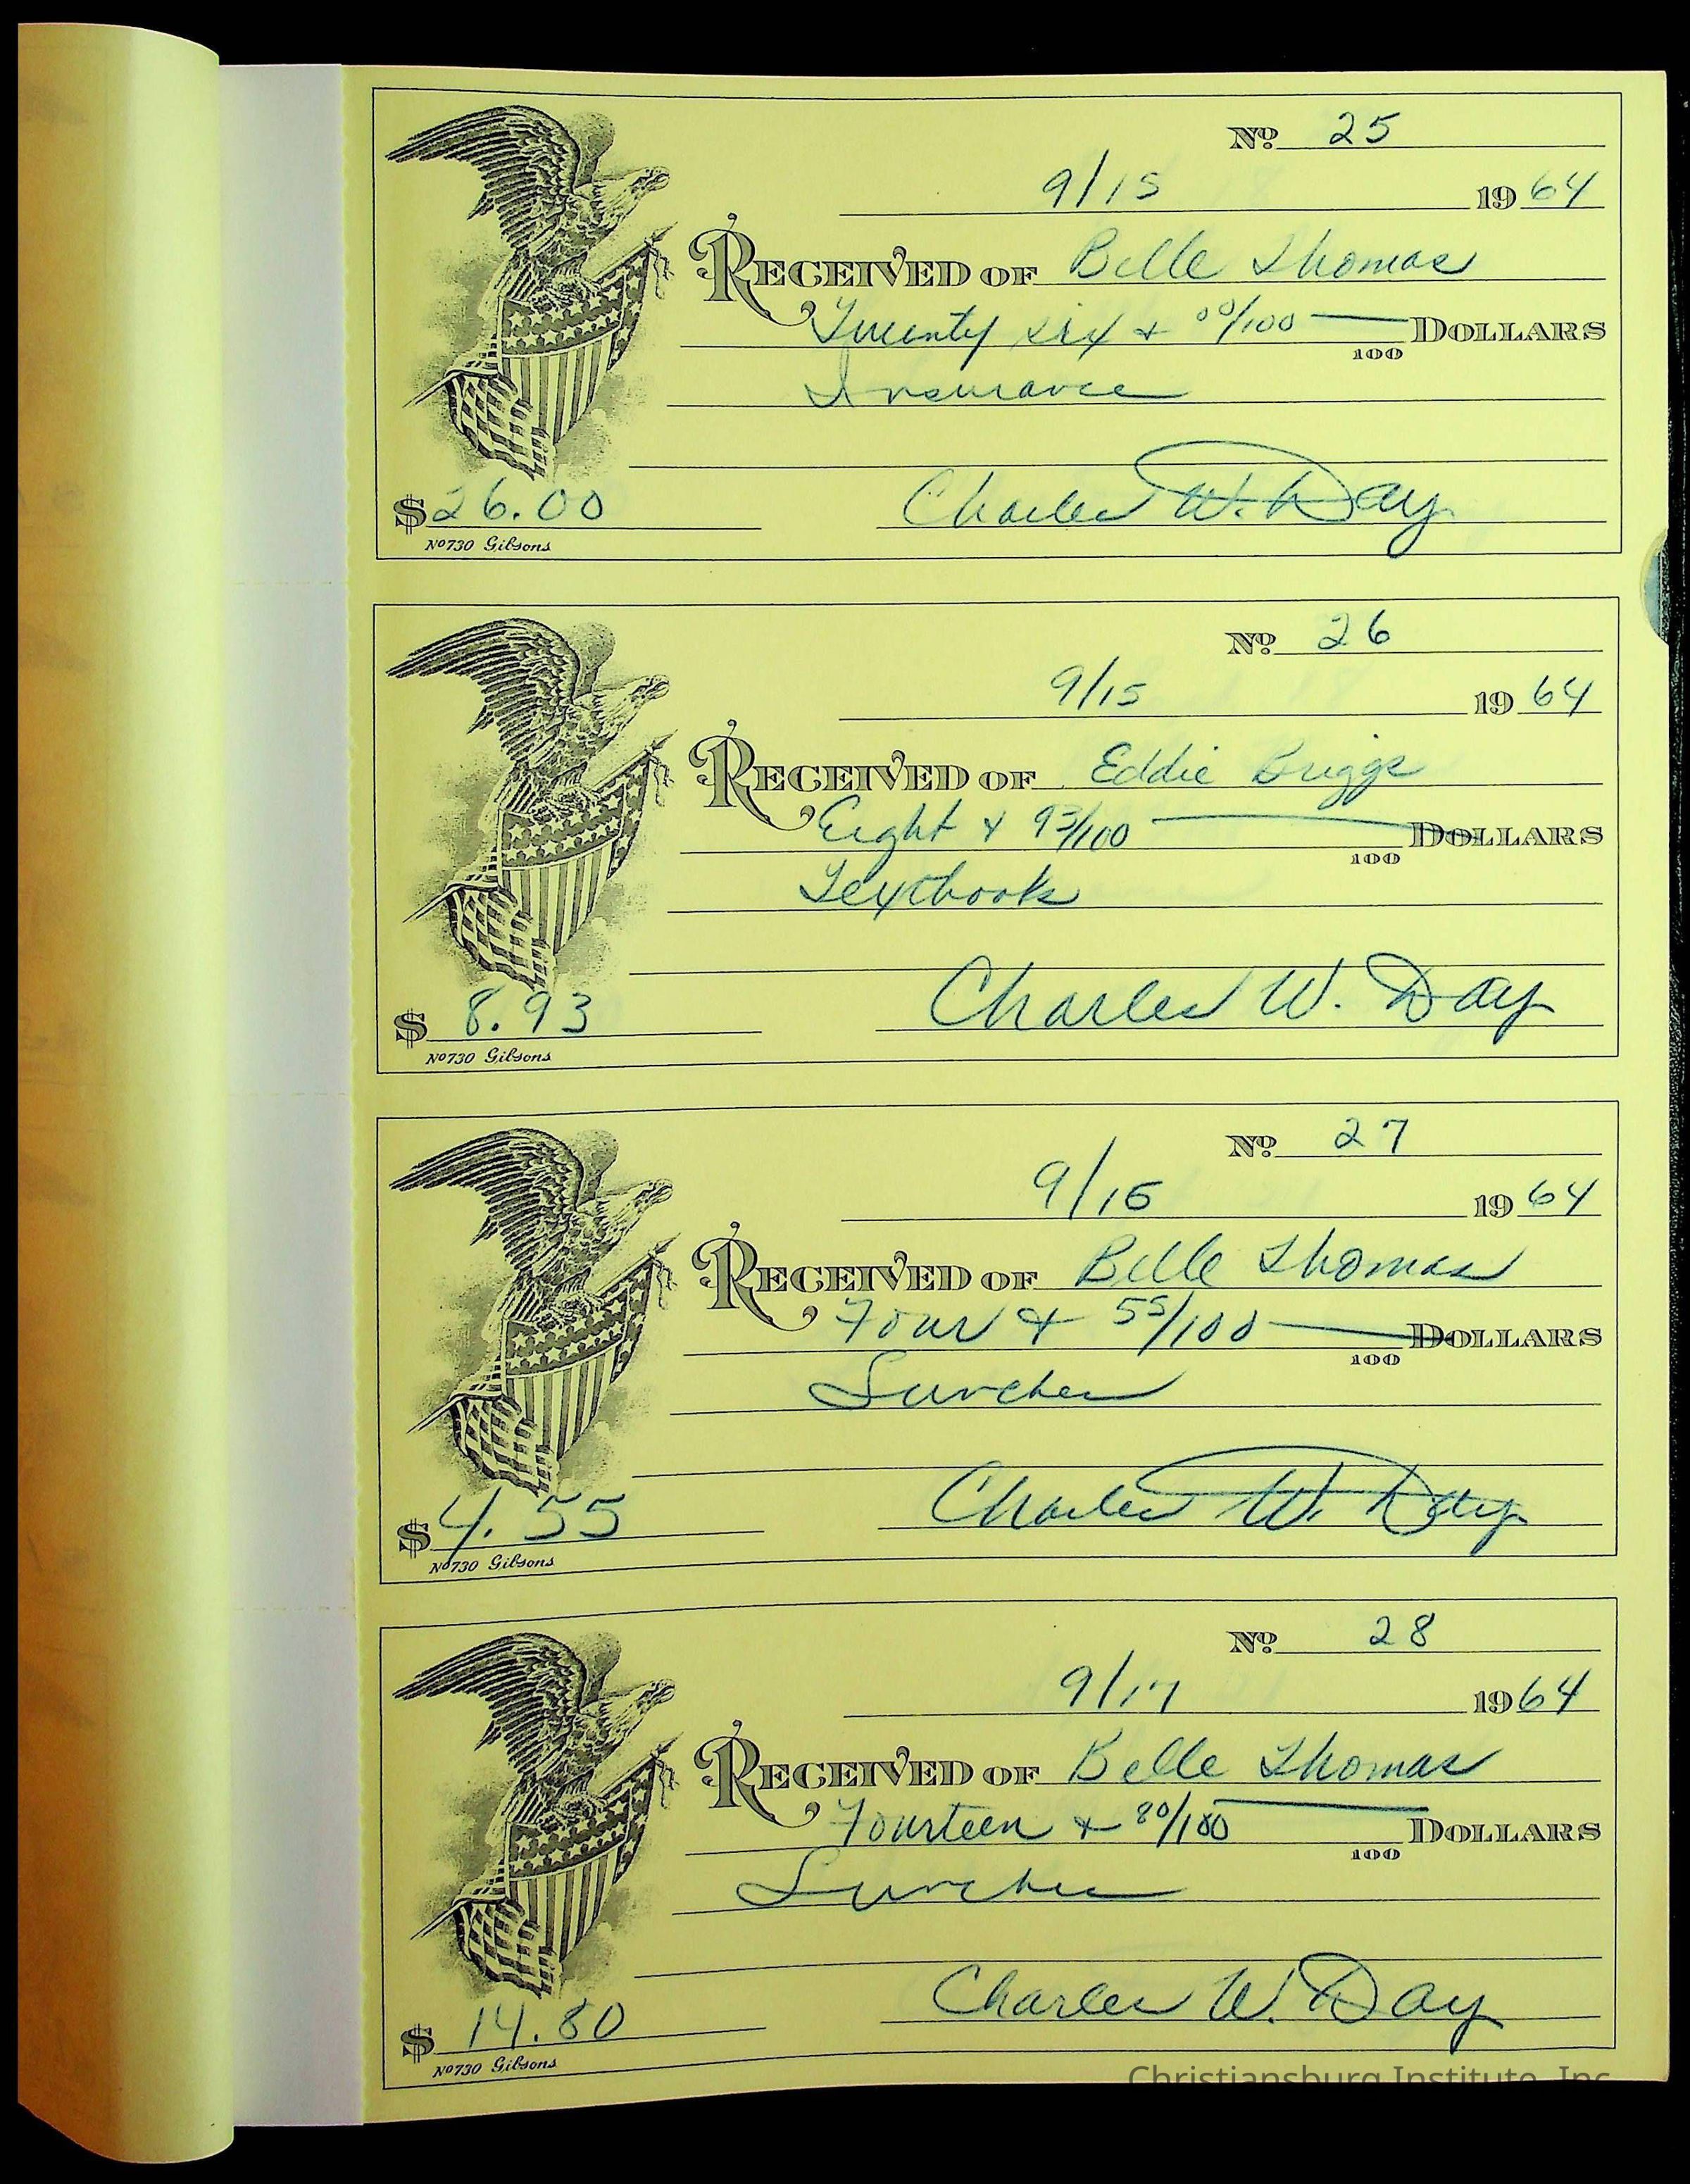 Nº 25
9/15 1964
RECEIVED OF Belle Thomas
Twenty six + 00/100 — DOLLARS
100
Insurance
$26.00 Charles W. Day
Nº730 Gibsons
Nº 26
9/15 1964
RECEIVED OF Eddie Briggs
Eight + 93/100 — DOLLARS
100
Textbooks
$8.93 Charles W. Day
Nº730 Gibsons
Nº 27
9/16 1964
RECEIVED OF Belle Thomas
Four + 55/100 — DOLLARS
100
Lunches
$4.55 Charles W. Day
Nº730 Gibsons
Nº 28
9/17 1964
RECEIVED OF Belle Thomas
Fourteen + 80/100 — DOLLARS
100
Lunches
$14.80 Charles W. Day
Nº730 Gibsons
Christiansburg Institute, Inc.